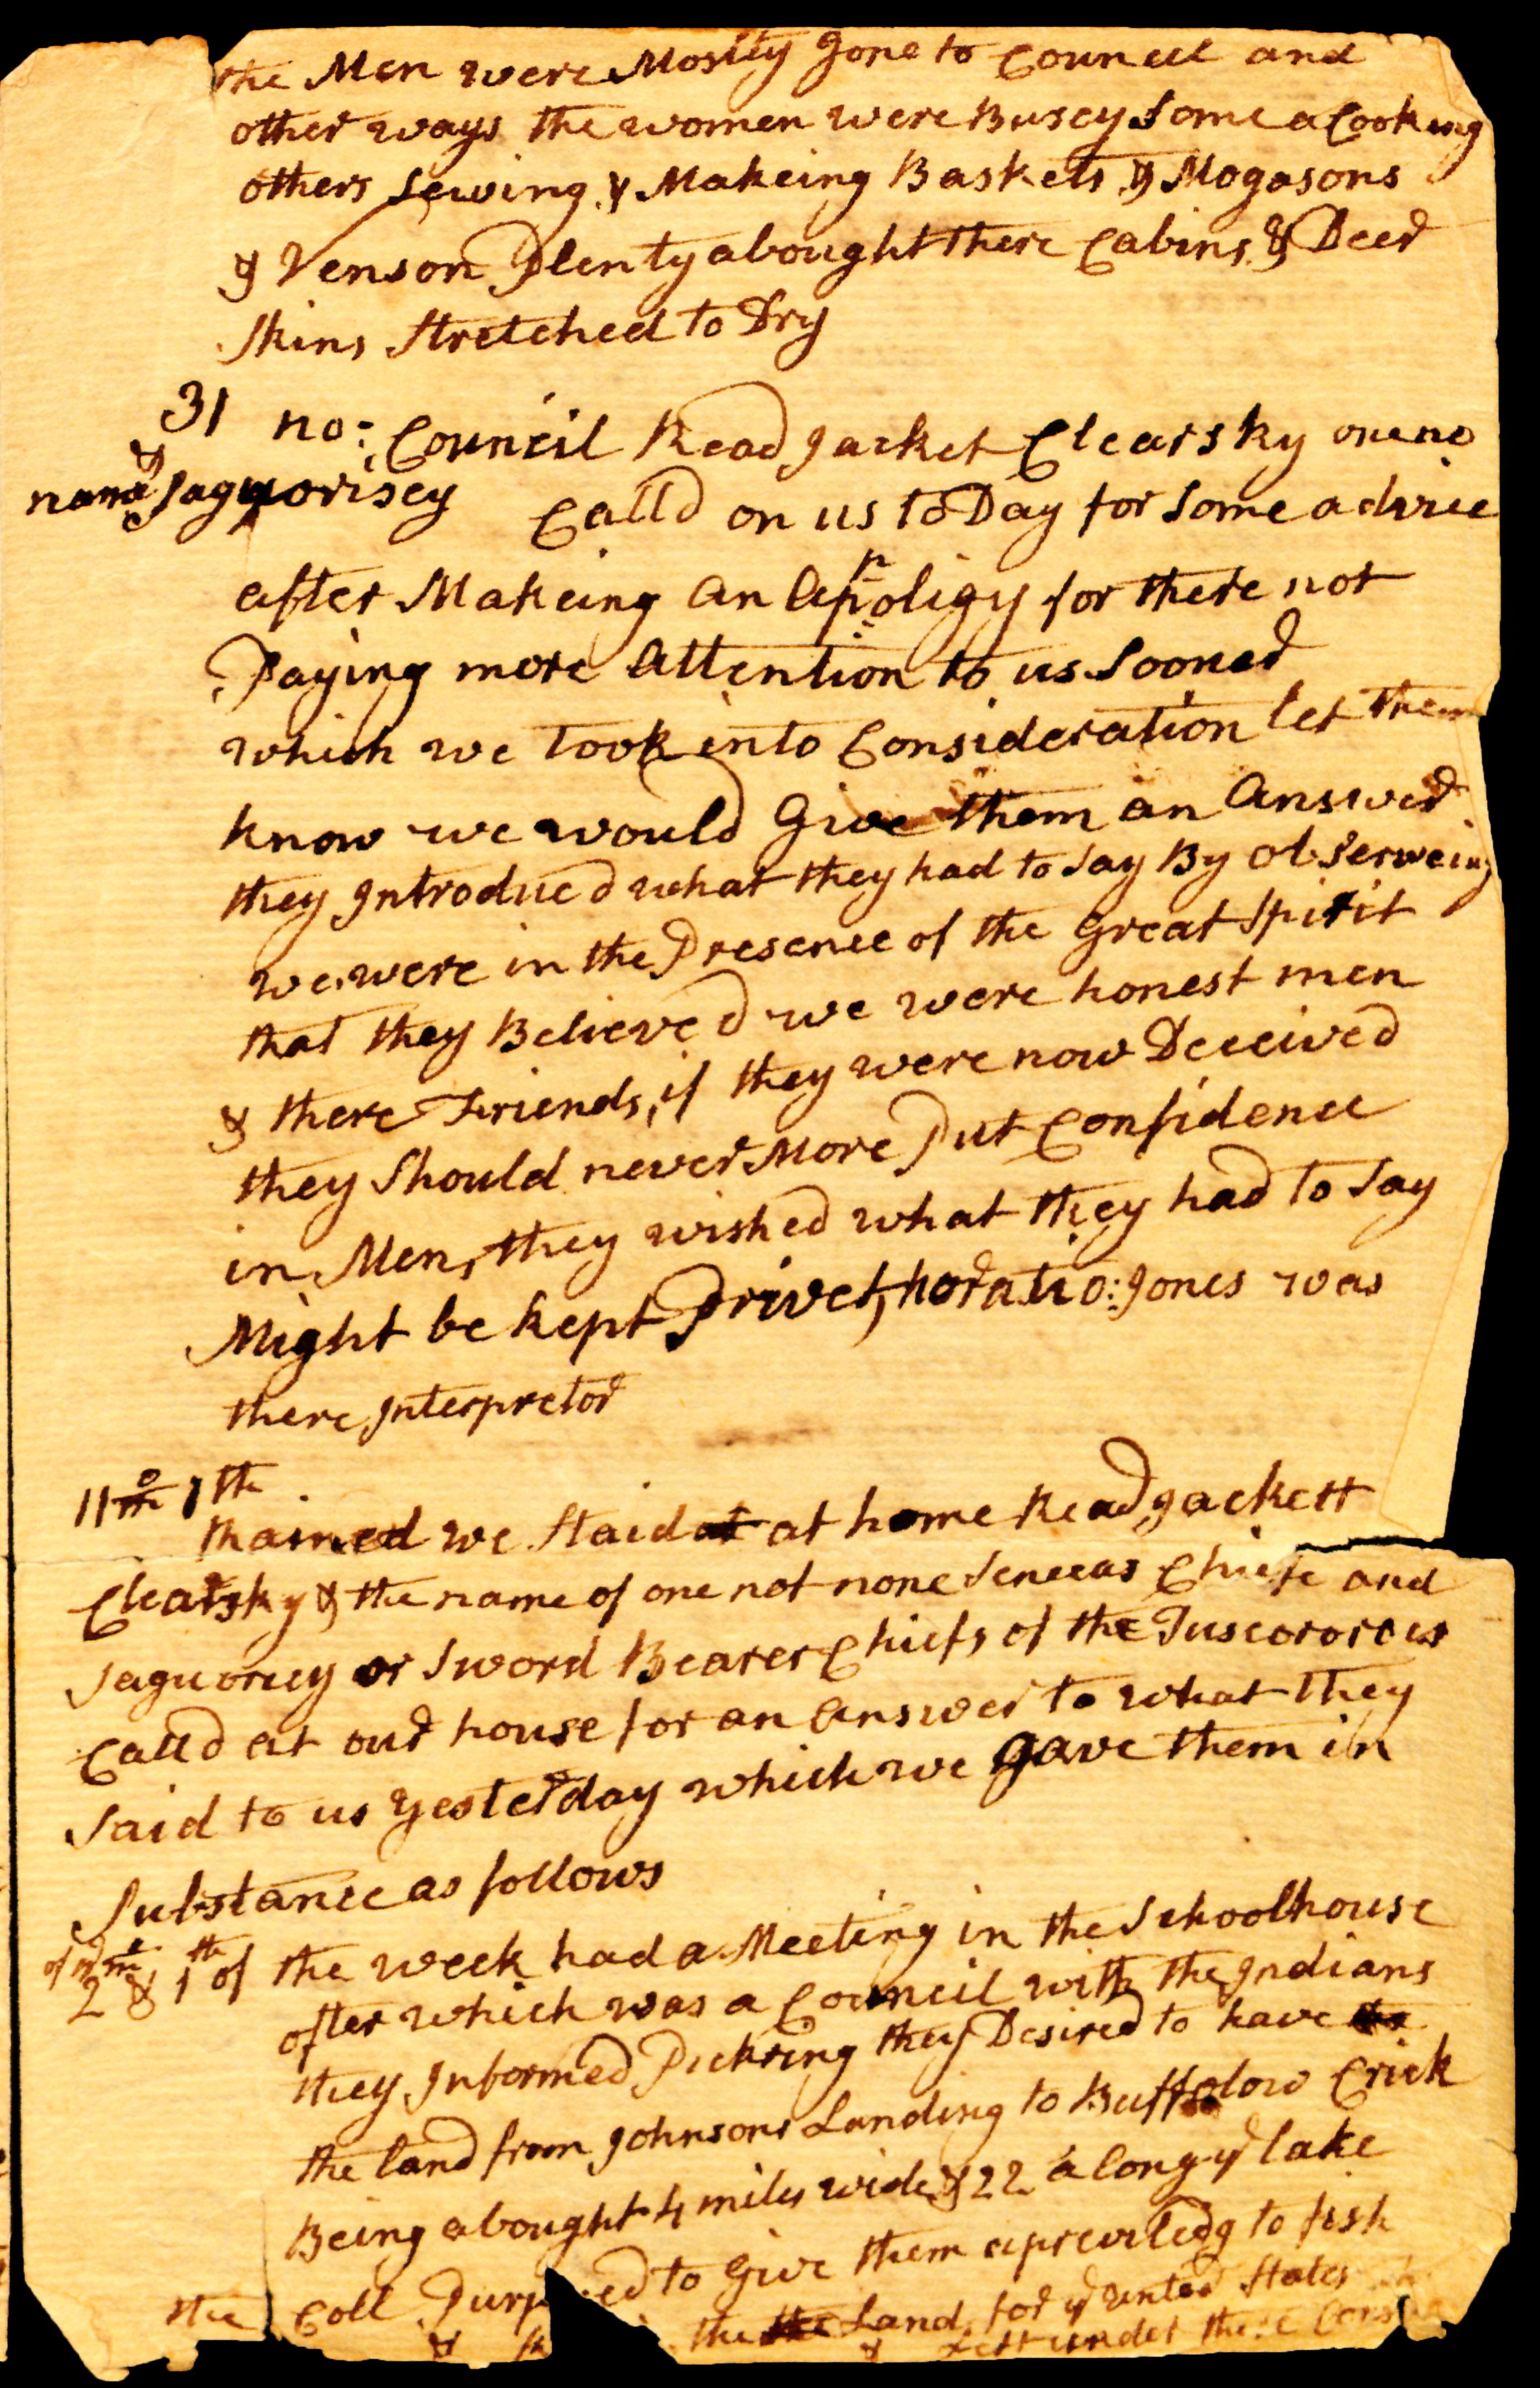 the Men were Mostly gone to Councel and
other ways the women were Busey some a Cooking
others sewing & Makeing Baskets & Mogasons
& Venson Plenty abought there Cabins & Deer
skins stretched to Dry
31 no: Council Read Jacket Clearsky one no
& name Jaguorisey Calld on us to Day for some advice
after Makeing an Appoligy for there not
Paying more Attention to us sooner
which we took into Consideration let them
know we would Give them an Answer
they Introduced what they had to say By observeing
we were in the Presence of the Great Spirit
that they Believed we were honest men
& there Friends, if they were now Deceived
they should never More Put Confidence
in Men, they wished what they had to say
Might be kept Privet, horatio: Jones was
there Interpretor
11mo 1th
Rained we staid at at home Read Jackett
Clearsky & the name of one not none Senecas Chiefe and
Saguorisey or Sword Bearer Chiefs of the Tuscororoes
Calld at our house for an Answer to what they
said to us yesterday which we gave them in
Substance as follows
2 & 1th of the week had a Meeting in the Schoolhouse
after which was a Council with the Indians
they Informed Pickring they Desired to have the
the land from Johnsons Landing to Buffolow Crick
Being abought 4 miles wide & 22 along ye lake
Coll Purposed to Give them a previledg to fish
the & the the Land for ye united States
& Lett under these